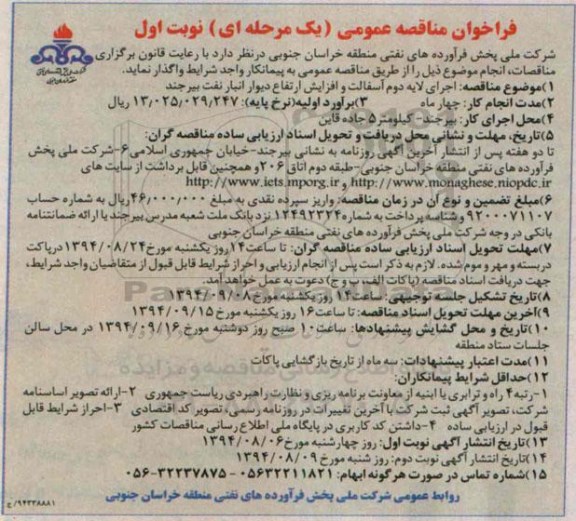 فراخوان مناقصه عمومی (یک مرحله ای) نوبت اول
شرکت ملی پخش فرآورده های نفتی منطقه خراسان جنوبی درنظر دارد با رعایت قانون برگزاری
مناقصات، انجام موضوع ذیل را از طریق مناقصه عمومی به پیمانکار واجد شرایط واگذار نماید.
۱)موضوع مناقصه: اجرای لایه دوم آسفالت و افزایش ارتفاع دیوار انبار نفت بیرجند
۲)مدت انجام کار: چهار ماه ۳)برآورد اولیه(نرخ پایه): ۱۳،۰۲۵،۰۲۹،۲۴۷ ریال
۴)محل اجرای کار: بیرجند-کیلومتر۵ جاده قاین
۵)تاریخ، مهلت و نشانی محل دریافت و تحویل اسناد ارزیابی ساده مناقصه گران:
تا دو هفته پس از انتشار آخرین آگهی روزنامه به نشانی بیرجند-خیابان جمهوری اسلامی۶-شرکت ملی پخش
فرآورده های نفتی منطقه خراسان جنوبی-طبقه دوم اتاق ۲۰۶ و همچنین قابل برداشت از سایت های
http://www.monaghese.niopdc.ir و http://www.iets.mporg.ir
۶)مبلغ تضمین و نوع آن در زمان مناقصه: واریز سپرده نقدی به مبلغ ۴۶،۰۰۰،۰۰۰ریال به شماره حساب
۹۲۰۰۰۷۱۱۰۷ وشناسه پرداخت به شماره ۱۲۴۹۲۳۲۴ نزد بانک ملت شعبه مدرس بیرجند یا ارائه ضمانتنامه
بانکی در وجه شرکت ملی پخش فرآورده های نفتی منطقه خراسان جنوبی
۷)مهلت تحویل اسناد ارزیابی ساده مناقصه گران: تا ساعت۱۴روز یکشنبه مورخ ۱۳۹۴/۰۸/۲۴ درپاکت
دربسته و مهر و موم شده. لازم به ذکر است پس از انجام ارزیابی و احراز شرایط قابل قبول از متقاضیان واجد شرایط،
جهت دریافت اسناد مناقصه (پاکات الف، ب و ج) دعوت به عمل خواهد آمد.
۸)تاریخ تشکیل جلسه توجیهی: ساعت۱۴ روز یکشنبه مورخ ۱۳۹۴/۰۹/۰۸
۹)آخرین مهلت تحویل اسناد مناقصه: تا ساعت۱۶ روز یکشنبه مورخ ۱۳۹۴/۰۹/۱۵
۱۰)تاریخ و محل گشایش پیشنهادها: ساعت۱۰ صبح روز دوشنبه مورخ ۱۳۹۴/۰۹/۱۶ در محل سالن
جلسات ستاد منطقه
۱۱)مدت اعتبار پیشنهادات: سه ماه از تاریخ بازگشایی پاکات
۱۲)حداقل شرایط پیمانکاران:
۱-رتبه۴ راه و ترابری یا ابنیه از معاونت برنامه ریزی و نظارت راهبردی ریاست جمهوری ۲-ارائه تصویر اساسنامه
شرکت، تصویر آگهی ثبت شرکت با آخرین تغییرات در روزنامه رسمی، تصویر کد اقتصادی ۳-احراز شرایط قابل
قبول در ارزیابی ساده ۴-داشتن کد کاربری در پایگاه ملی اطلاع رسانی مناقصات کشور
۱۳)تاریخ انتشار آگهی نوبت اول: روز چهارشنبه مورخ۱۳۹۴/۰۸/۰۶
۱۴)تاریخ انتشار آگهی نوبت دوم: روز شنبه مورخ ۱۳۹۴/۰۸/۰۹
۱۵)شماره تماس در صورت هرگونه ابهام: ۰۵۶۳۲۲۱۱۸۲۱-۰۵۶-۳۲۲۳۷۸۷۵
روابط عمومی شرکت ملی پخش فرآورده های نفتی منطقه خراسان جنوبی
۹۴۳۳۸۸۸۱/ج